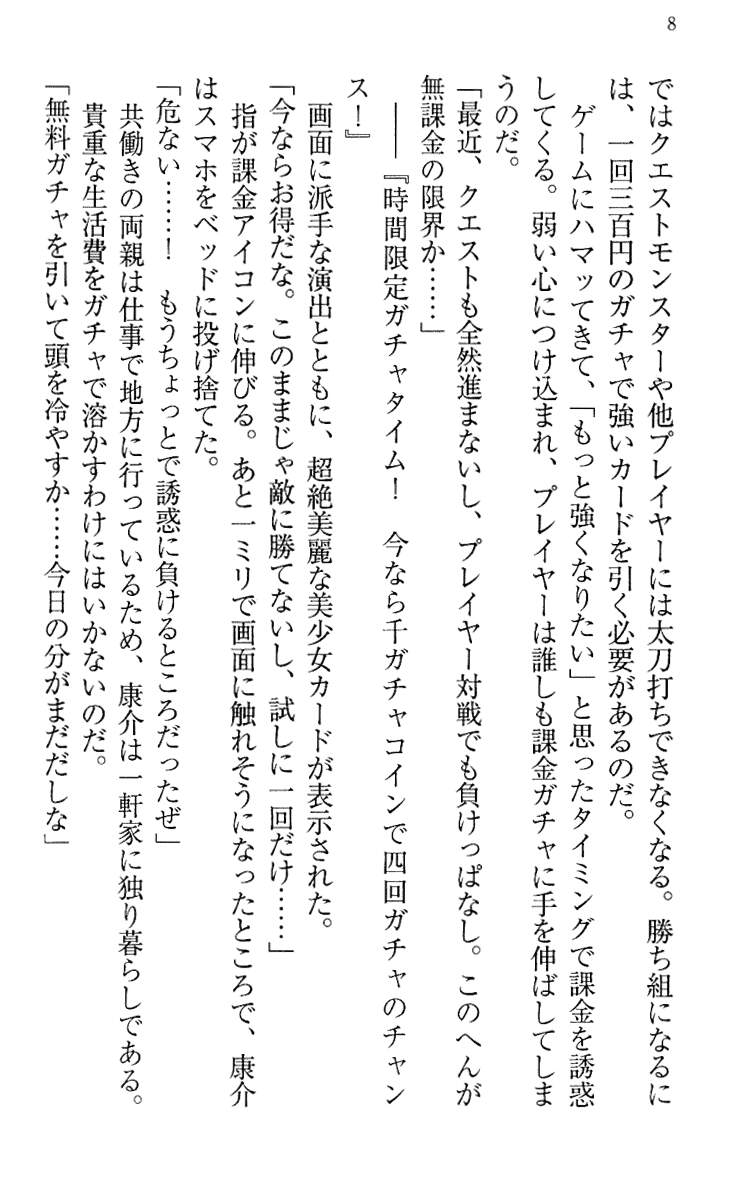 8
ではクエストモンスターや他プレイヤーには太刀打ちできなくなる。勝ち組になるに
は、一回三百円のガチャで強いカードを引く必要があるのだ。
　ゲームにハマッてきて、「もっと強くなりたい」と思ったタイミングで課金を誘惑
してくる。弱い心につけ込まれ、プレイヤーは誰しも課金ガチャに手を伸ばしてしま
うのだ。
「最近、クエストも全然進まないし、プレイヤー対戦でも負けっぱなし。このへんが
無課金の限界か……」
　――『時間限定ガチャタイム！　今なら千ガチャコインで四回ガチャのチャン
ス！』
　画面に派手な演出とともに、超絶美麗な美少女カードが表示された。
「今ならお得だな。このままじゃ敵に勝てないし、試しに一回だけ……」
　指が課金アイコンに伸びる。あと一ミリで画面に触れそうになったところで、康介
はスマホをベッドに投げ捨てた。
「危ない……！　もうちょっとで誘惑に負けるところだったぜ」
　共働きの両親は仕事で地方に行っているため、康介は一軒家に独り暮らしである。
貴重な生活費をガチャで溶かすわけにはいかないのだ。
「無料ガチャを引いて頭を冷やすか……今日の分がまだだしな」